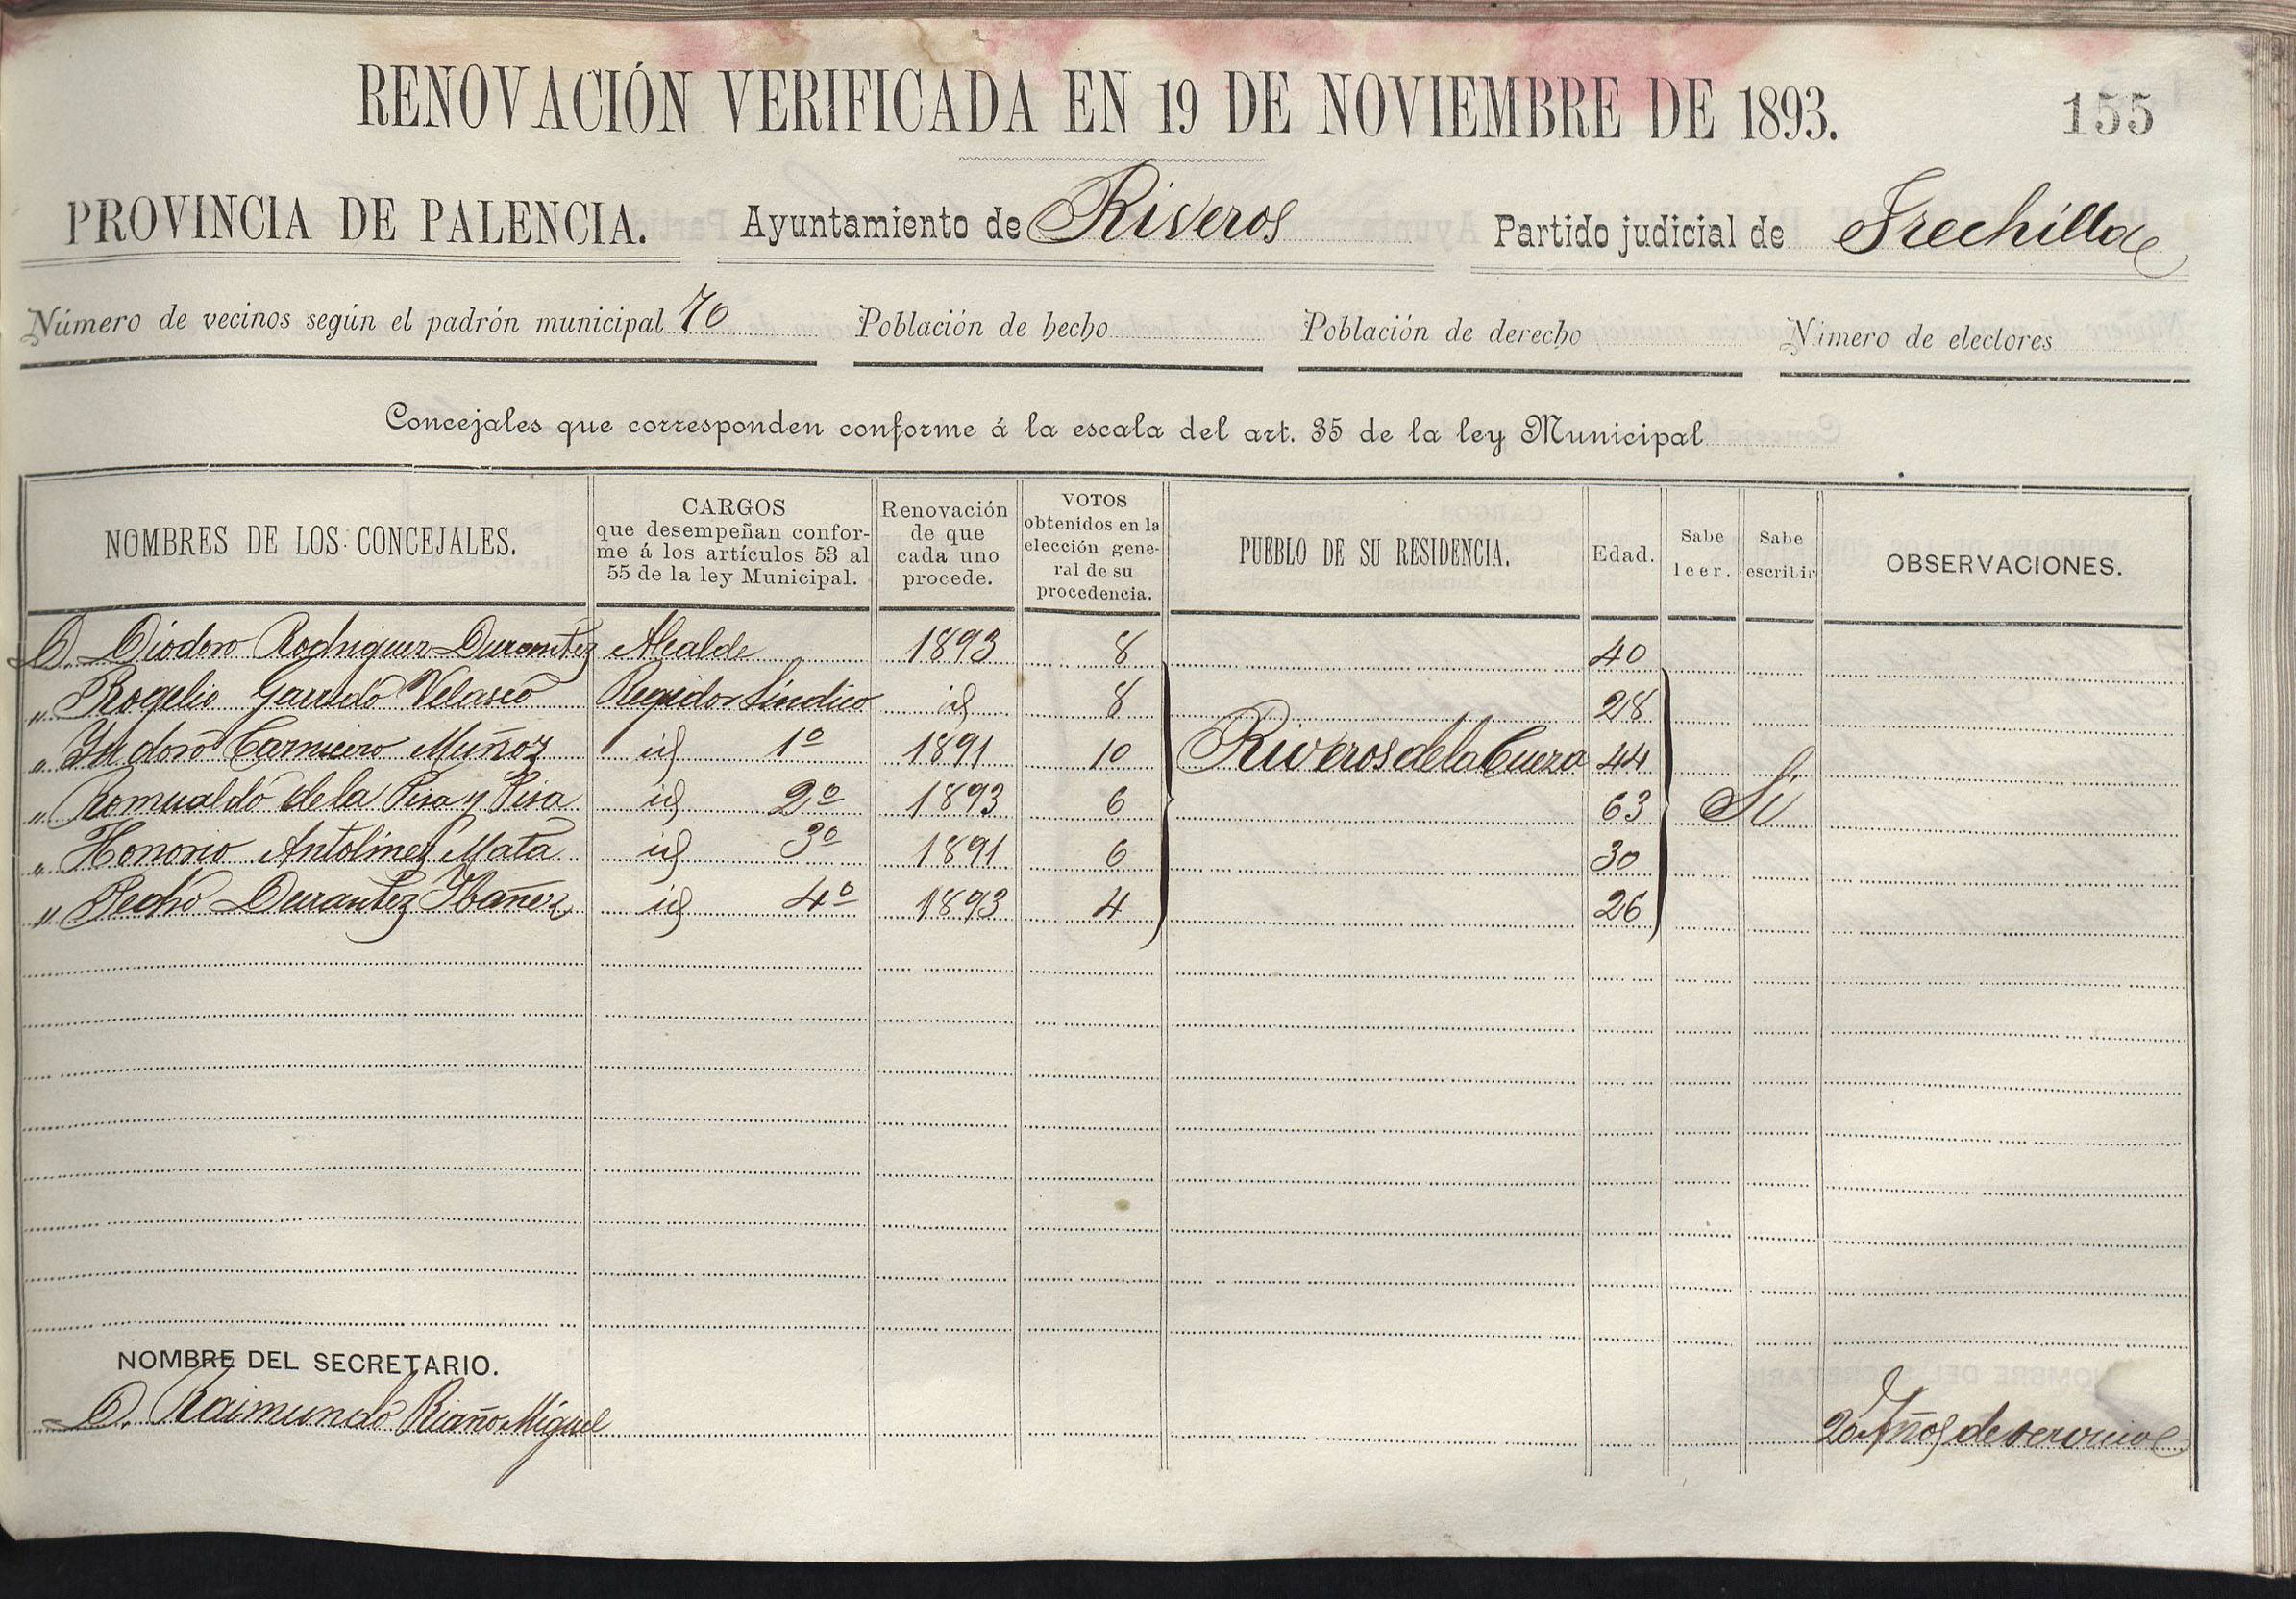 RENOVACIÓN VERIFICADA EN 19 DE NOVIEMBRE DE 1893. 155
PROVINCIA DE PALENCIA. Ayuntamiento de Riveros Partido judicial de Frechilla
Número de vecinos según el padrón municipal 70 Población de hecho Población de derecho Número de electores
Concejales que corresponden conforme á la escala del art. 35 de la ley Municipal
NOMBRES DE LOS CONCEJALES. CARGOS que desempeñan confor- me á los artículos 53 al 55 de la ley Municipal. Renovación de que cada uno procede. VOTOS obtenidos en la elección gene- ral de su procedencia. PUEBLO DE SU RESIDENCIA. Edad. Sabe leer. Sabe escribir OBSERVACIONES.
D. Diodoro Rodriguez Durantez Alcalde 1893 8 40
" Rogelio Garrido Velasco Regidor Síndico id 8 28
" Isidoro Carnicero Muñoz id 1º 1891 10 Riveros de la Cueza 44
" Romualdo de la Pisa y Pisa id 2º 1893 6 63 Si
" Honorio Antolinez Mata id 3º 1891 6 30
" Pedro Durantez Ibañez id 4º 1893 4 26
NOMBRE DEL SECRETARIO.
D. Raimundo Riaño Miguel 20 Años de servicios